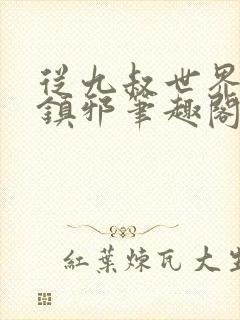 從九叔世界
鎮邪筆趣閣
紅葉煉瓦大